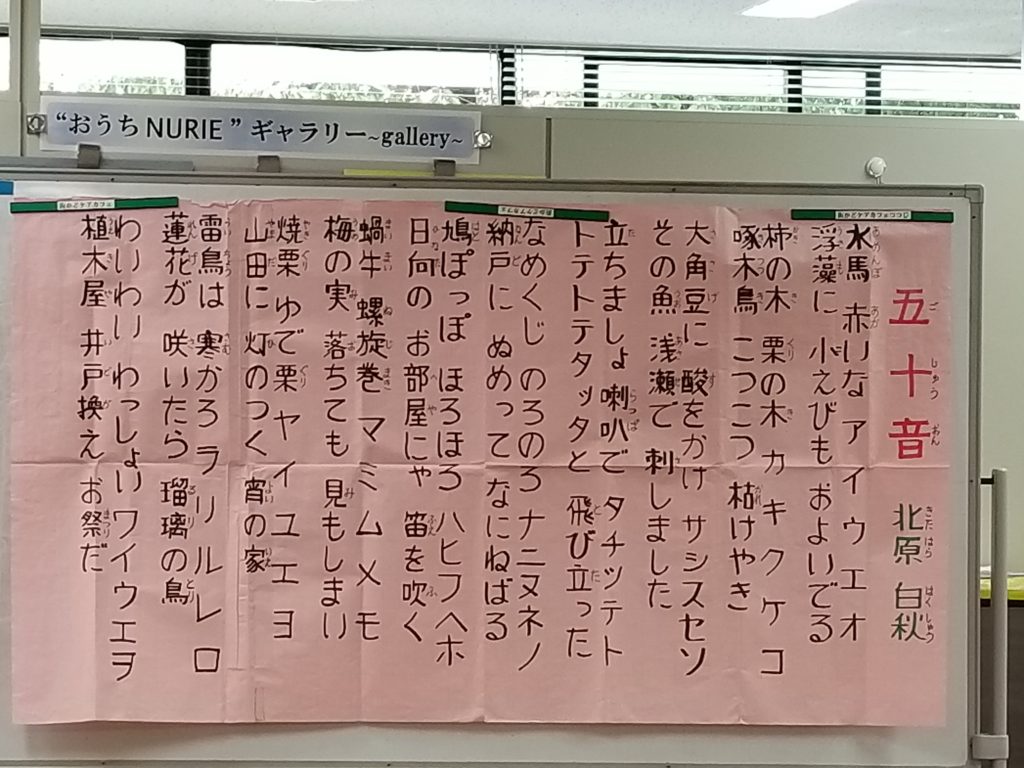 “おうち NURIE ” ギャラリー~gallery~
五十音
北原 白秋
水馬 赤いな アイウエオ
浮藻に 小えびも およいでる
柿の木 栗の木 カキクケコ
啄木鳥 こつこつ 枯けやき
大角豆に 酸をかけ サシスセソ
その魚 浅瀬で 刺しました
立ちましょ 喇叭で タチツテト
トテトテタッタと 飛び立った
なめくじ のろのろ ナニヌネノ
納戸に ぬめって なにねばる
鳩ぽっぽ ほろほろ ハヒフヘホ
日向の お部屋にゃ 笛を吹く
蝸牛 螺旋巻 マミムメモ
梅の実 落ちても 見もしまい
焼栗 ゆで栗 ヤイユエヨ
山田に 灯のつく 宵の家
雷鳥は 寒かろ ラリルレロ
蓮花が 咲いたら 瑠璃の鳥
わいわい わっしょい ワイウエヲ
植木屋 井戸換え お祭だ